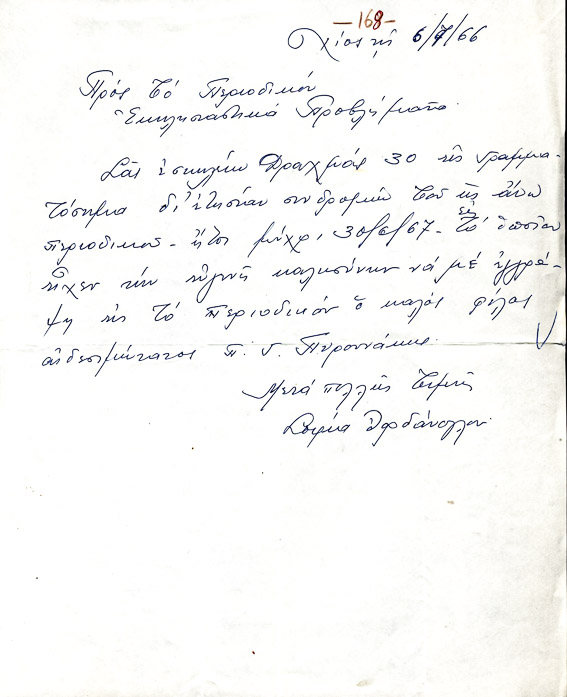 —168—
Χίος τῇ 6/7/66
Πρός τό Περιοδικόν
Ἐκκλησιαστικά Προβλήματα.
Σᾶς ἐσωκλείω Δραχμάς 30 εἰς γραμμα-
τόσημα δι' ἐτησίαν συνδρομήν τοῦ ὡς ἄνω
περιοδικοῦ - ἤτοι μέχρι 30/6/67 - εἰς τό ὁποῖον
εἶχεν τήν εὐγενῆ καλωσύνην νά μέ ἐγγρά-
ψη εἰς τό περιοδικόν ὁ καλός φίλος
αἰδεσιμώτατος π. Γ. Πυρουνάκης.
Μετά πολλῆς τιμῆς
Σοφία